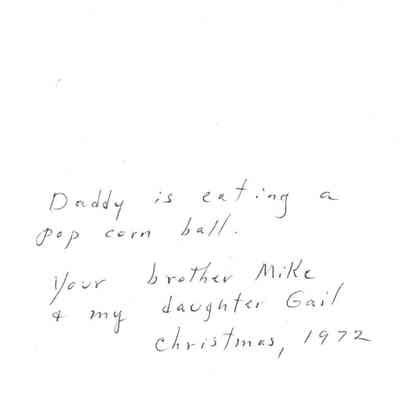 Daddy is eating a
pop corn ball.
Your brother Mike
& my daughter Gail
Christmas, 1972